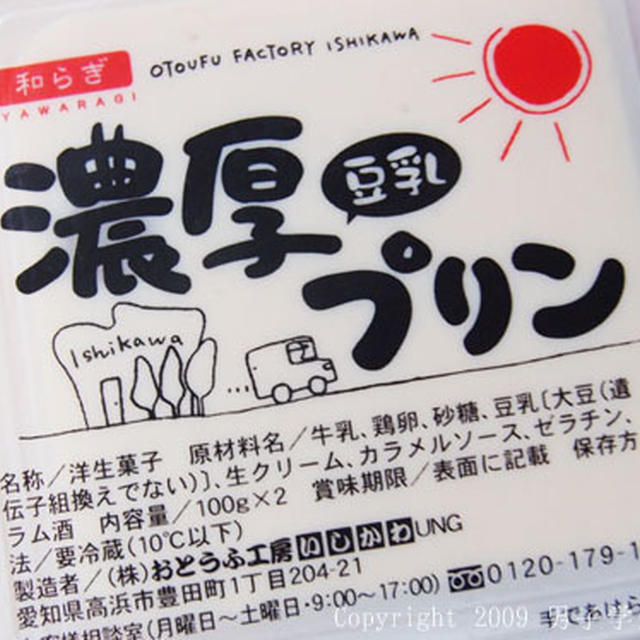 和らぎ
YAWARAGI
OTOUFU FACTORY ISHIKAWA
濃厚
豆乳
プリン
Ishikawa
名称/洋生菓子 原材料名/牛乳、鶏卵、砂糖、豆乳〔大豆(遺
伝子組換えでない)〕、生クリーム、カラメルソース、ゼラチン、
ラム酒 内容量/100g×2 賞味期限/表面に記載 保存方
法/要冷蔵(10℃以下)
製造者/(株)おとうふ工房いしかわUNG
愛知県高浜市豊田町1丁目204-21
お客様相談室(月曜日〜土曜日・9:00〜17:00) 0120-179-1
Copyright 2009